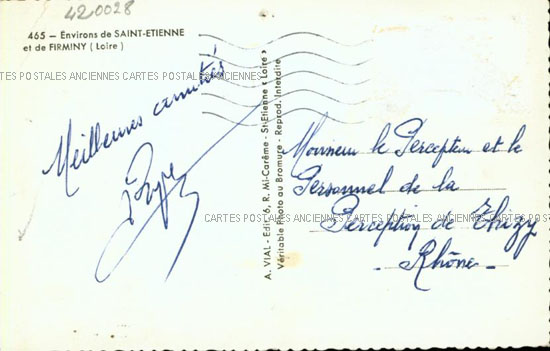 420028
465 — Environs de SAINT-ETIENNE
et de FIRMINY ( Loire )
CARTES POSTALES ANCIENNES CARTES POSTALES ANCIENNES CARTES POSTALES ANCIENNES CARTES POSTALES ANCIENNES
Meilleures amitiés
A. VIAL - Edit. 26, R. Mi-Carême - St-Etienne « Loire »
Véritable Photo au Bromure - Reprod. Interdite
Monsieur le Percepteur et le
Personnel de la
CARTES POSTALES ANCIENNES CARTES POSTALES ANCIENNES CARTES POSTALES ANCIENNES
Perception de Thizy
- Rhône -